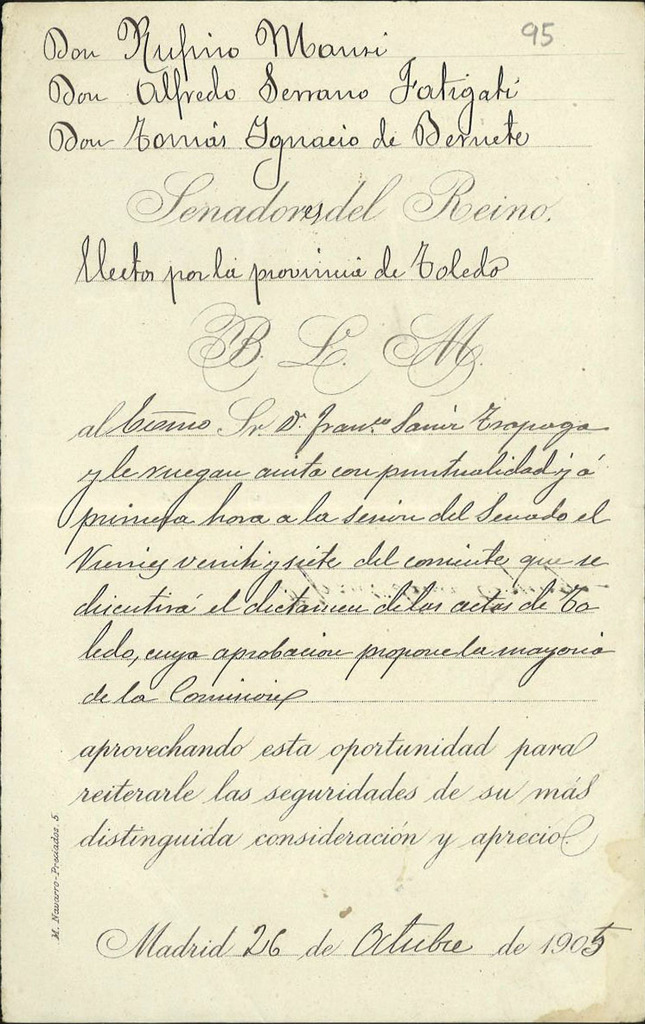 95
Don Rufino Mansi
Don Alfredo Serrano Fatigati
Don Tomás Ignacio de Beruete
Senadores del Reino.
Electos por la provincia de Toledo
B. L. M.
al Excmo Sr. D. Franco
y le ruegan asista con puntualidad y á
primera hora a la sesion del Senado el
Viernes veinti y siete del corriente que se
discutirá el dictamen de las actas de To
ledo, cuya aprobacion propone la mayoria
de la Comision
aprovechando esta oportunidad para
reiterarle las seguridades de su más
distinguida consideración y aprecio.
Madrid 26 de Octubre de 1905
M. Navarro-Preciados, 5.